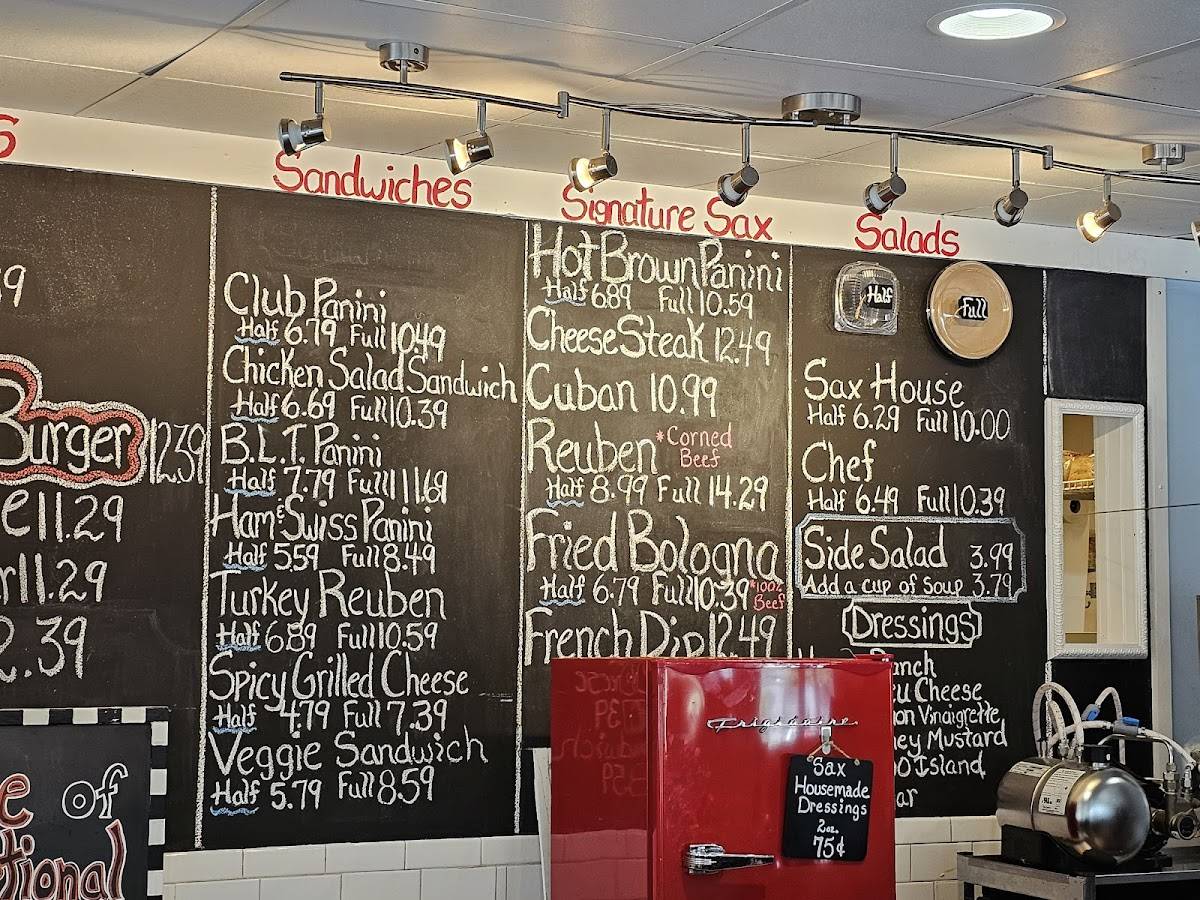 S
Sandwiches
Signature Sax
Salads
9
Burger 12.39
e 11.29
r 11.29
2.39
e of
tional
Club Panini
Half 6.79 Full 10.49
Chicken Salad Sandwich
Half 6.69 Full 10.39
B.L.T. Panini
Half 7.79 Full 11.69
Ham & Swiss Panini
Half 5.59 Full 8.49
Turkey Reuben
Half 6.89 Full 10.59
Spicy Grilled Cheese
Half 4.79 Full 7.39
Veggie Sandwich
Half 5.79 Full 8.59
Hot Brown Panini
Half 6.89 Full 10.59
Cheese Steak 12.49
Cuban 10.99
Reuben *Corned
Beef
Half 8.99 Full 14.29
Fried Bologna
Half 6.79 Full 10.39 *100%
Beef
French Dip 12.49
Half
Full
Sax House
Half 6.29 Full 10.00
Chef
Half 6.49 Full 10.39
Side Salad 3.99
Add a cup of soup 3.79
Dressings
Ranch
eu Cheese
on Vinaigrette
ney Mustard
0 Island
ar
Frigidaire
Sax
Housemade
Dressings
2oz.
75¢